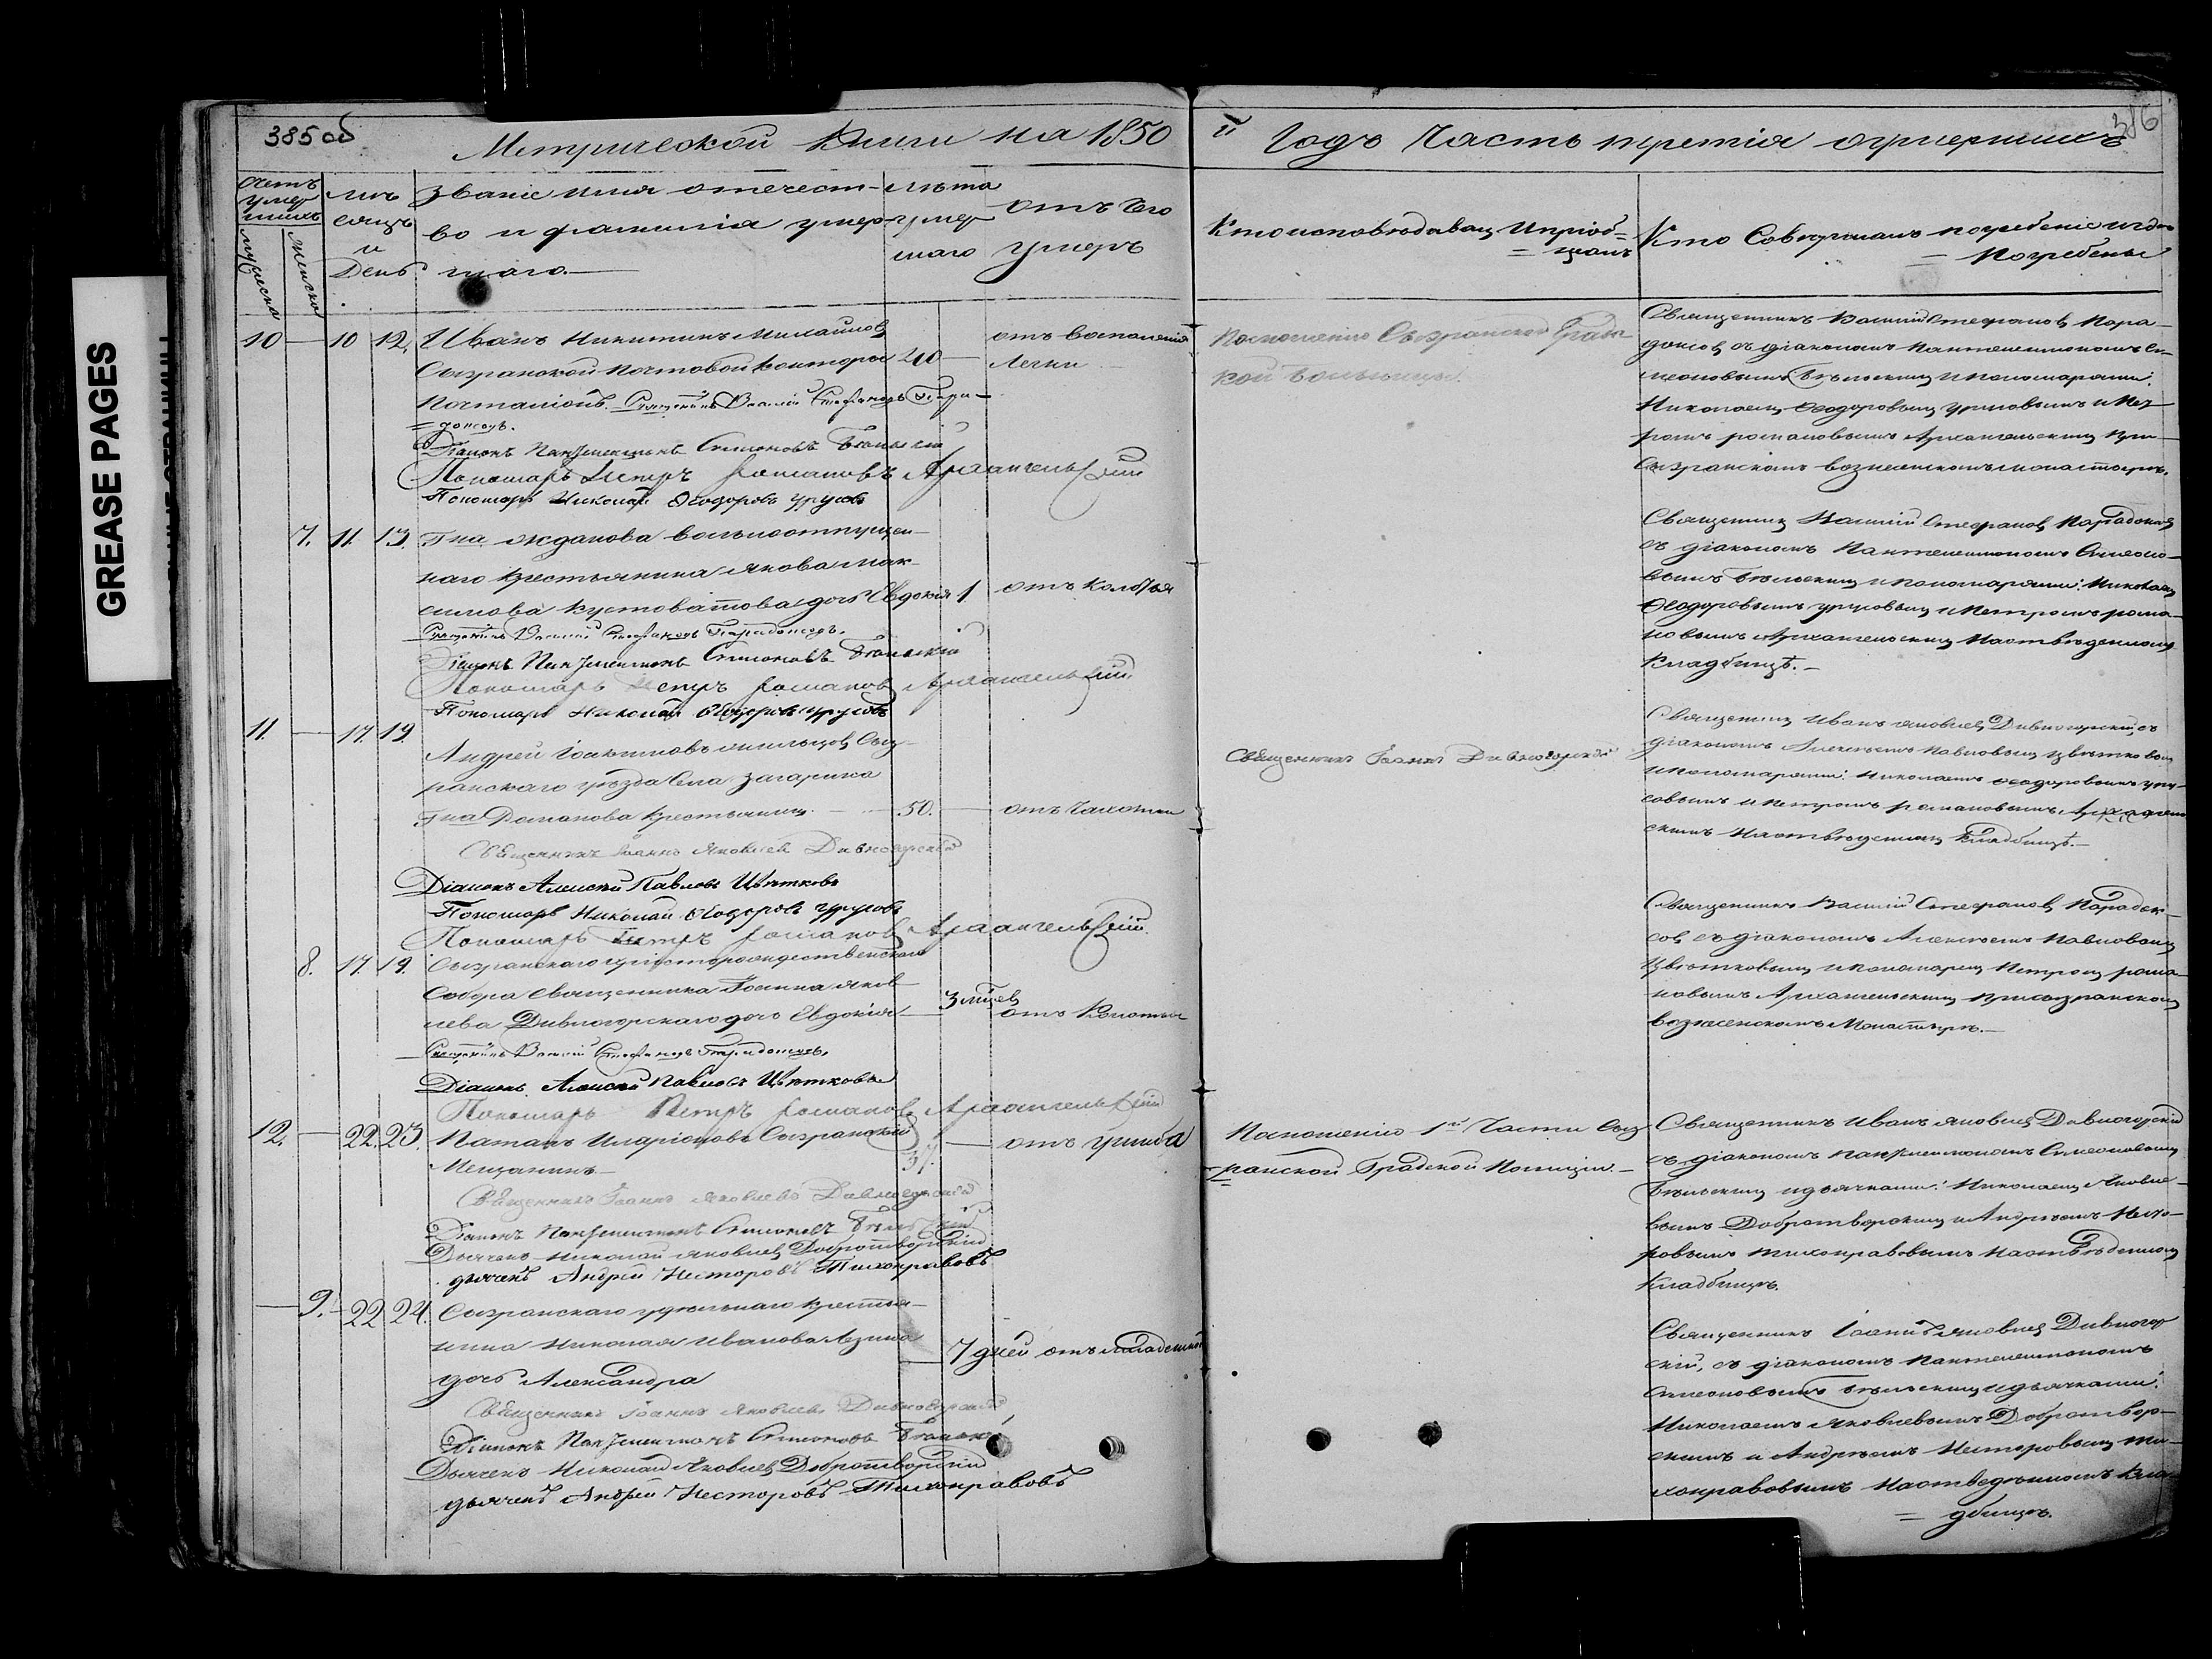 GREASE PAGES
385 об
Метрической Книги на 1850
й Годъ Часть третія объ умершихъ
386
Счетъ умершихъ
мужеска
женска
Мѣсяцъ и День
Званіе имя отечество и фамилія умершаго.
Лѣта умершаго
Отъ чего умеръ
Кто исповѣдавалъ и пріобщалъ
Кто Совершалъ погребеніе и гдѣ Погребены
10 — 10 12. Иванъ Никитинъ Михайловъ
Сызранской почтовой конторы 40 —
Почталіонъ.
отъ воспаленія
Легки
Священникъ Василій Стефановъ Пара-
=доксовъ.
Діаконъ Пантелеимонъ Симеоновъ
Пономарь Петръ Романовъ Архангельскій
Пономарь Николай Ѳеодоровъ Урусовъ
По сношенію Сызранской Градс
кой больницы.
Священникъ Василій Стефановъ Пара-
доксовъ съ діакономъ Пантелеимономъ Си-
меоновымъ и пономарями:
Николаемъ Ѳеодоровымъ Урусовымъ и Пет
ромъ Романовымъ Архангельскимъ при
Сызранскомъ вознесенскомъ монастырѣ.
7. 11. 13. Гна Жданова вольноотпущен-
наго Крестьянина Якова Мак-
симова дочь Евдокія 1 отъ Колотья
Священникъ Василій Стефановъ Парадоксовъ.
Діаконъ Пантелеимонъ Симеоновъ
Пономарь Петръ Романовъ Архангельскій
Пономарь Николай Ѳеодоровъ Урусовъ
Священникъ Василій Стефановъ Парадоксовъ
съ діакономъ Пантелеимономъ Симеоно-
вымъ и пономарями: Николаемъ
Ѳеодоровымъ Урусовымъ и Петромъ Рома-
новымъ Архангельскимъ На отведенномъ
Кладбищѣ. —
11. — 17. 19.
Андрей Сыз-
ранскаго уѣзда Села Загарина
Гна Романова Крестьянинъ — 50. — отъ Чахотки
Священникъ Іоаннъ Яковлевъ Дивногорскій
Діаконъ Алексѣй Павловъ Цвѣтковъ
Пономарь Николай Ѳеодоровъ Урусовъ
Пономарь Петръ Романовъ Архангельскій
Священникъ Іоаннъ Дивногорскій
Священникъ Иванъ Яковлевъ Дивногорскій, съ
діакономъ Алексѣемъ Павловымъ Цвѣтковымъ
и пономарями: Николаемъ Ѳеодоровымъ Уру-
совымъ и Петромъ Романовымъ Архангель
скимъ На отведенномъ Кладбищѣ. —
8. 17. 19. Сызранскаго христорождественскаго
Собора Священника Іоанна Яков-
лева Дивногорскаго дочь Евдокія — 3 мѣсяцев отъ Колотья
Священникъ Василій Стефановъ Парадоксовъ.
Діаконъ Алексѣй Павловъ Цвѣтковъ
Пономарь Петръ Романовъ Архангельскій
Священникъ Василій Стефановъ Парадок-
совъ съ діакономъ Алексѣемъ Павловымъ
Цвѣтковымъ и пономаремъ Петромъ Рома-
новымъ Архангельскимъ при сызранскомъ
вознесенскомъ Монастырѣ. —
12. — 22. 23. Иларіоновъ Сызранскій 37. — отъ ушиба
Мещанинъ —
Священникъ Іоаннъ Яковлевъ Дивногорскій
Діаконъ Пантелеимонъ Симеоновъ
Дьячекъ Николай Яковлевъ Добротворскій
дьячекъ Андрей Несторовъ Тихонравовъ
По сношенію 1й Части Сыз
ранской Градской Полиціи. —
Священникъ Иванъ Яковлевъ Дивногорскій
съ діакономъ Пантелеимономъ Симеоновымъ
и дьячками: Николаемъ Яковле-
вымъ Добротворскимъ и Андреемъ Несто-
ровымъ Тихонравовымъ На отведенномъ
Кладбищѣ.
— 9. — 22 24. Сызранскаго удѣльнаго крестья-
нина Николая Иванова
дочь Александра
7 дней отъ младенческой
Священникъ Іоаннъ Яковлевъ Дивногорскій
Діаконъ Пантелеимонъ Симеоновъ
Дьячекъ Николай Яковлевъ Добротворскій
дьячекъ Андрей Несторовъ Тихонравовъ
Священникъ Іоаннъ Яковлевъ Дивногор
скій, съ діакономъ Пантелеимономъ
Симеоновымъ и дьячками:
Николаемъ Яковлевымъ Добротвор-
скимъ и Андреемъ Несторовымъ Ти-
хонравовымъ На отведенномъ Кла-
=дбищѣ.